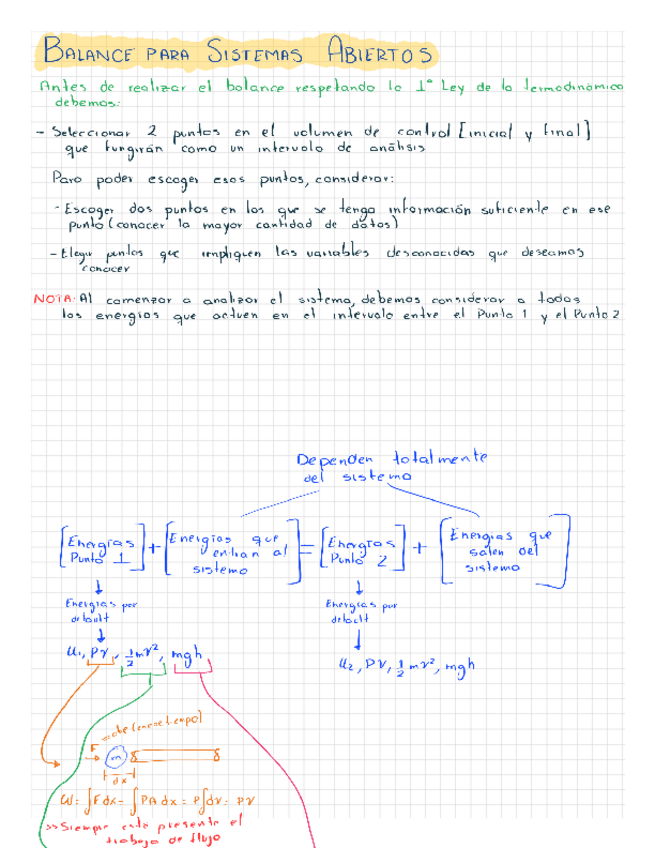 BALANCE PARA SISTEMAS ABIERTOS
Antes de realizar el balance respetando la 1° Ley de la termodinámica
debemos:
- Seleccionar 2 puntos en el volumen de control [inicial y final]
que fungirán como un intervalo de análisis
Para poder escoger esos puntos, considerar:
- Escoger dos puntos en los que se tenga información suficiente en ese
punto (conocer la mayor cantidad de datos)
- Elegir puntos que impliquen las variables desconocidas que deseamos
conocer
NOTA: Al comenzar a analizar el sistema, debemos considerar a todas
las energías que actuen en el intervalo entre el Punto 1 y el Punto 2
Dependen totalmente
del sistema
[Energías Punto 1] + [Energías que entran al sistema] = [Energías Punto 2] + [Energías que salen del sistema]
Energías por
default
Energías por
default
u₁, PV, ½mv², mgh
u₂, PV, ½mv², mgh
F
m
dx
W = ∫Fdx = ∫PAdx = P∫dv = PV
>> Siempre está presente el
trabajo de flujo